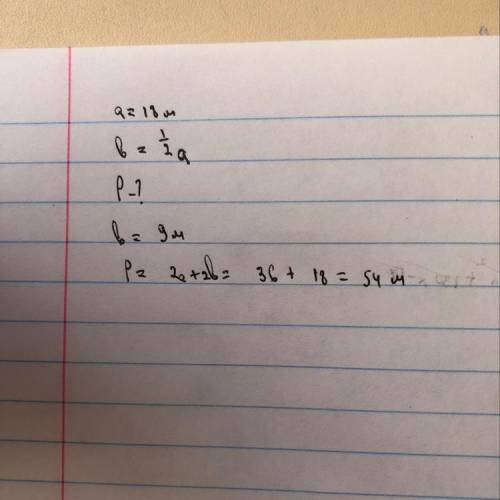 a = 18 м
b = 1/2 a
P - ?
b = 9 м
P = 2a + 2b = 36 + 18 = 54 м